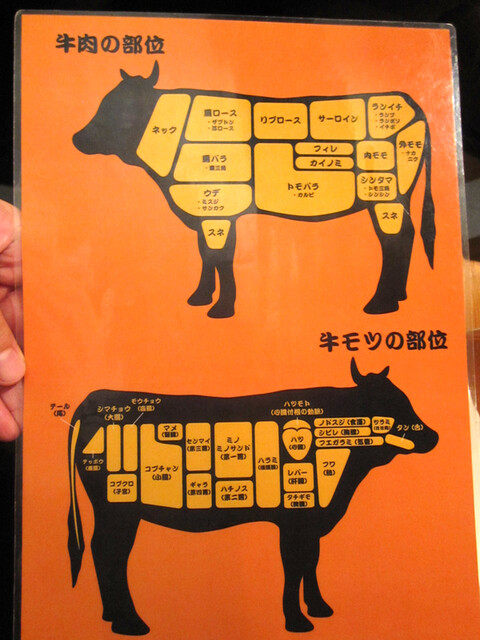 牛肉の部位
ネック
肩ロース
・ザブトン
・肩ロース
リブロース
サーロイン
ランイチ
・ランプ
・ランボソ
・イチボ
肩バラ
・肩三角
フィレ
カイノミ
内モモ
外モモ
・ナカ
ニク
トモバラ
・カルビ
シンタマ
・トモ三角
・シンシン
ウデ
・ミスジ
・サンカク
スネ
スネ
牛モツの部位
テール
(尾)
シマチョウ
(大腸)
モウチョウ
(盲腸)
テッポウ
(直腸)
コブクロ
(子宮)
マメ
(腎臓)
コプチャン
(小腸)
センマイ
(第三胃)
ギャラ
(第四胃)
ミノ
ミノサンド
(第一胃)
ハチノス
(第二胃)
ハラミ
(横隔膜)
ハツモト
(心臓付根の動脈)
ハツ
(心臓)
レバー
(肝臓)
タチギモ
(脾臓)
ノドスジ(食道)
シビレ(胸腺)
ウエガラミ(気管)
フワ
(肺)
サラミ
タン(舌)